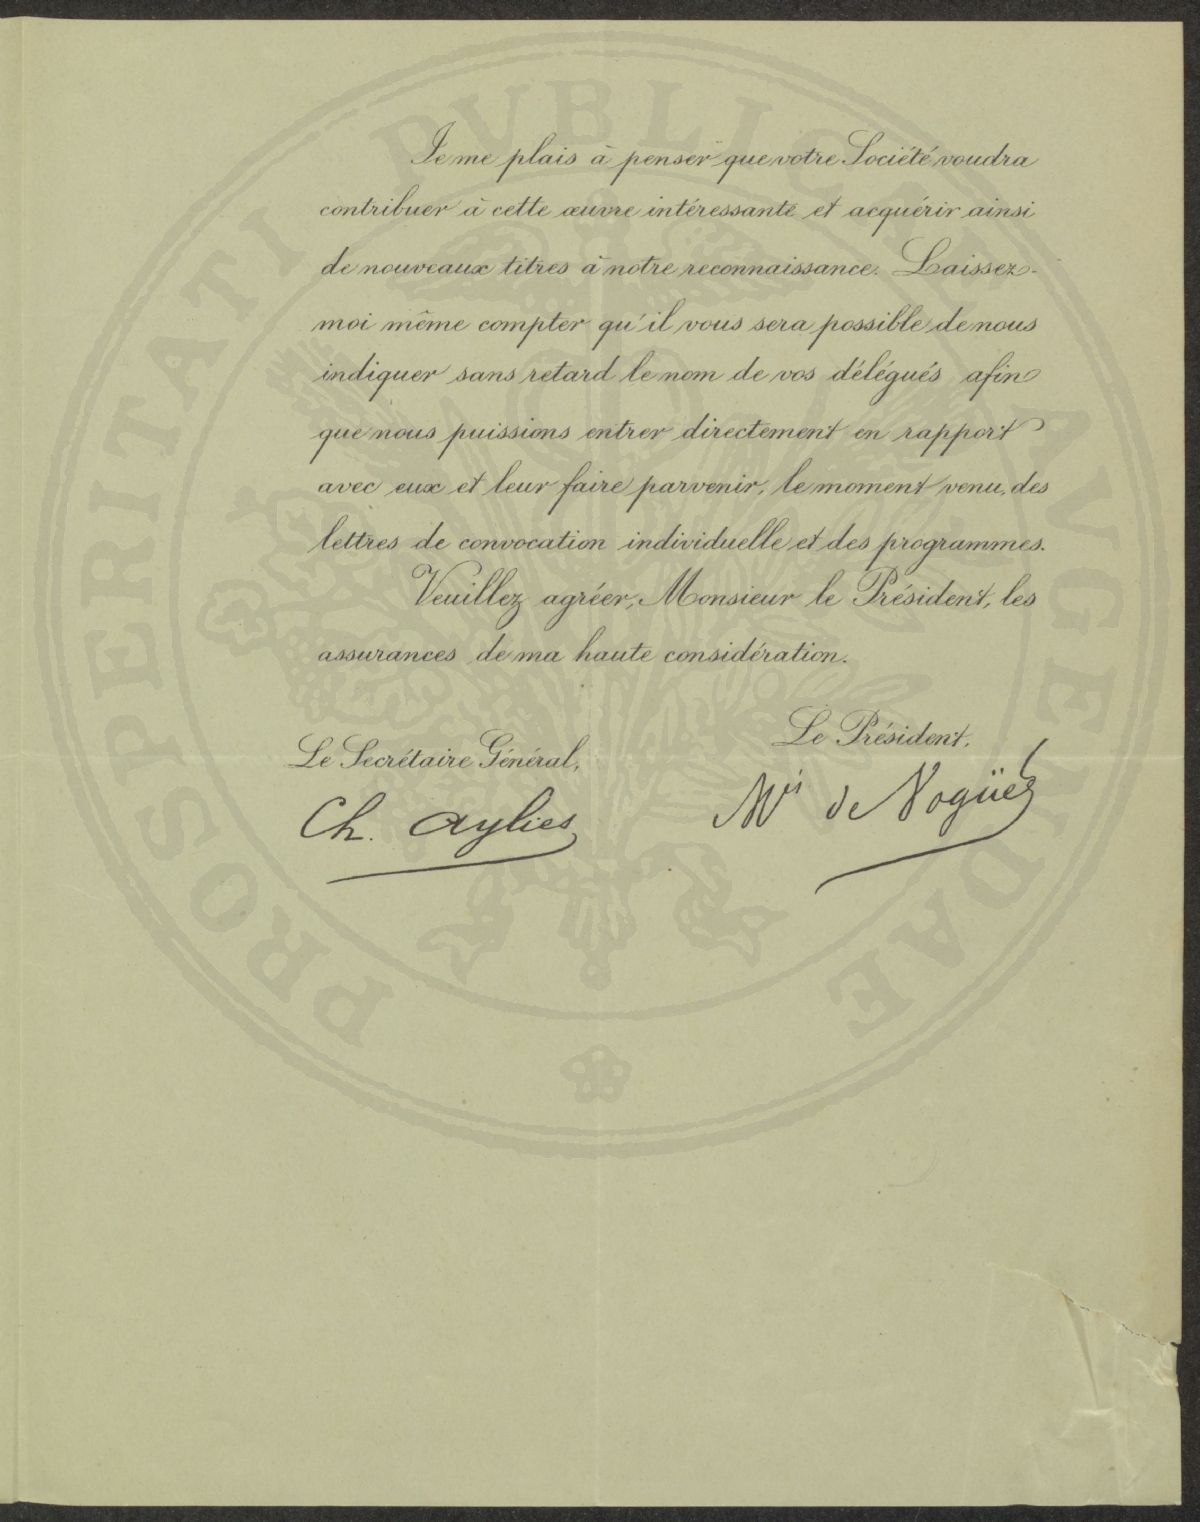 PROSPERITATI PVBLICAE AVGENDAE
Je me plais à penser que votre Société voudra
contribuer à cette œuvre intéressante et acquérir ainsi
de nouveaux titres à notre reconnaissance. Laissez-
moi même compter qu'il vous sera possible de nous
indiquer sans retard le nom de vos délégués afin
que nous puissions entrer directement en rapport
avec eux et leur faire parvenir, le moment venu, des
lettres de convocation individuelle et des programmes.
Veuillez agréer, Monsieur le Président, les
assurances de ma haute considération.
Le Président,
Le Secrétaire Général,
Mis de Vogüé
Ch. Aylies